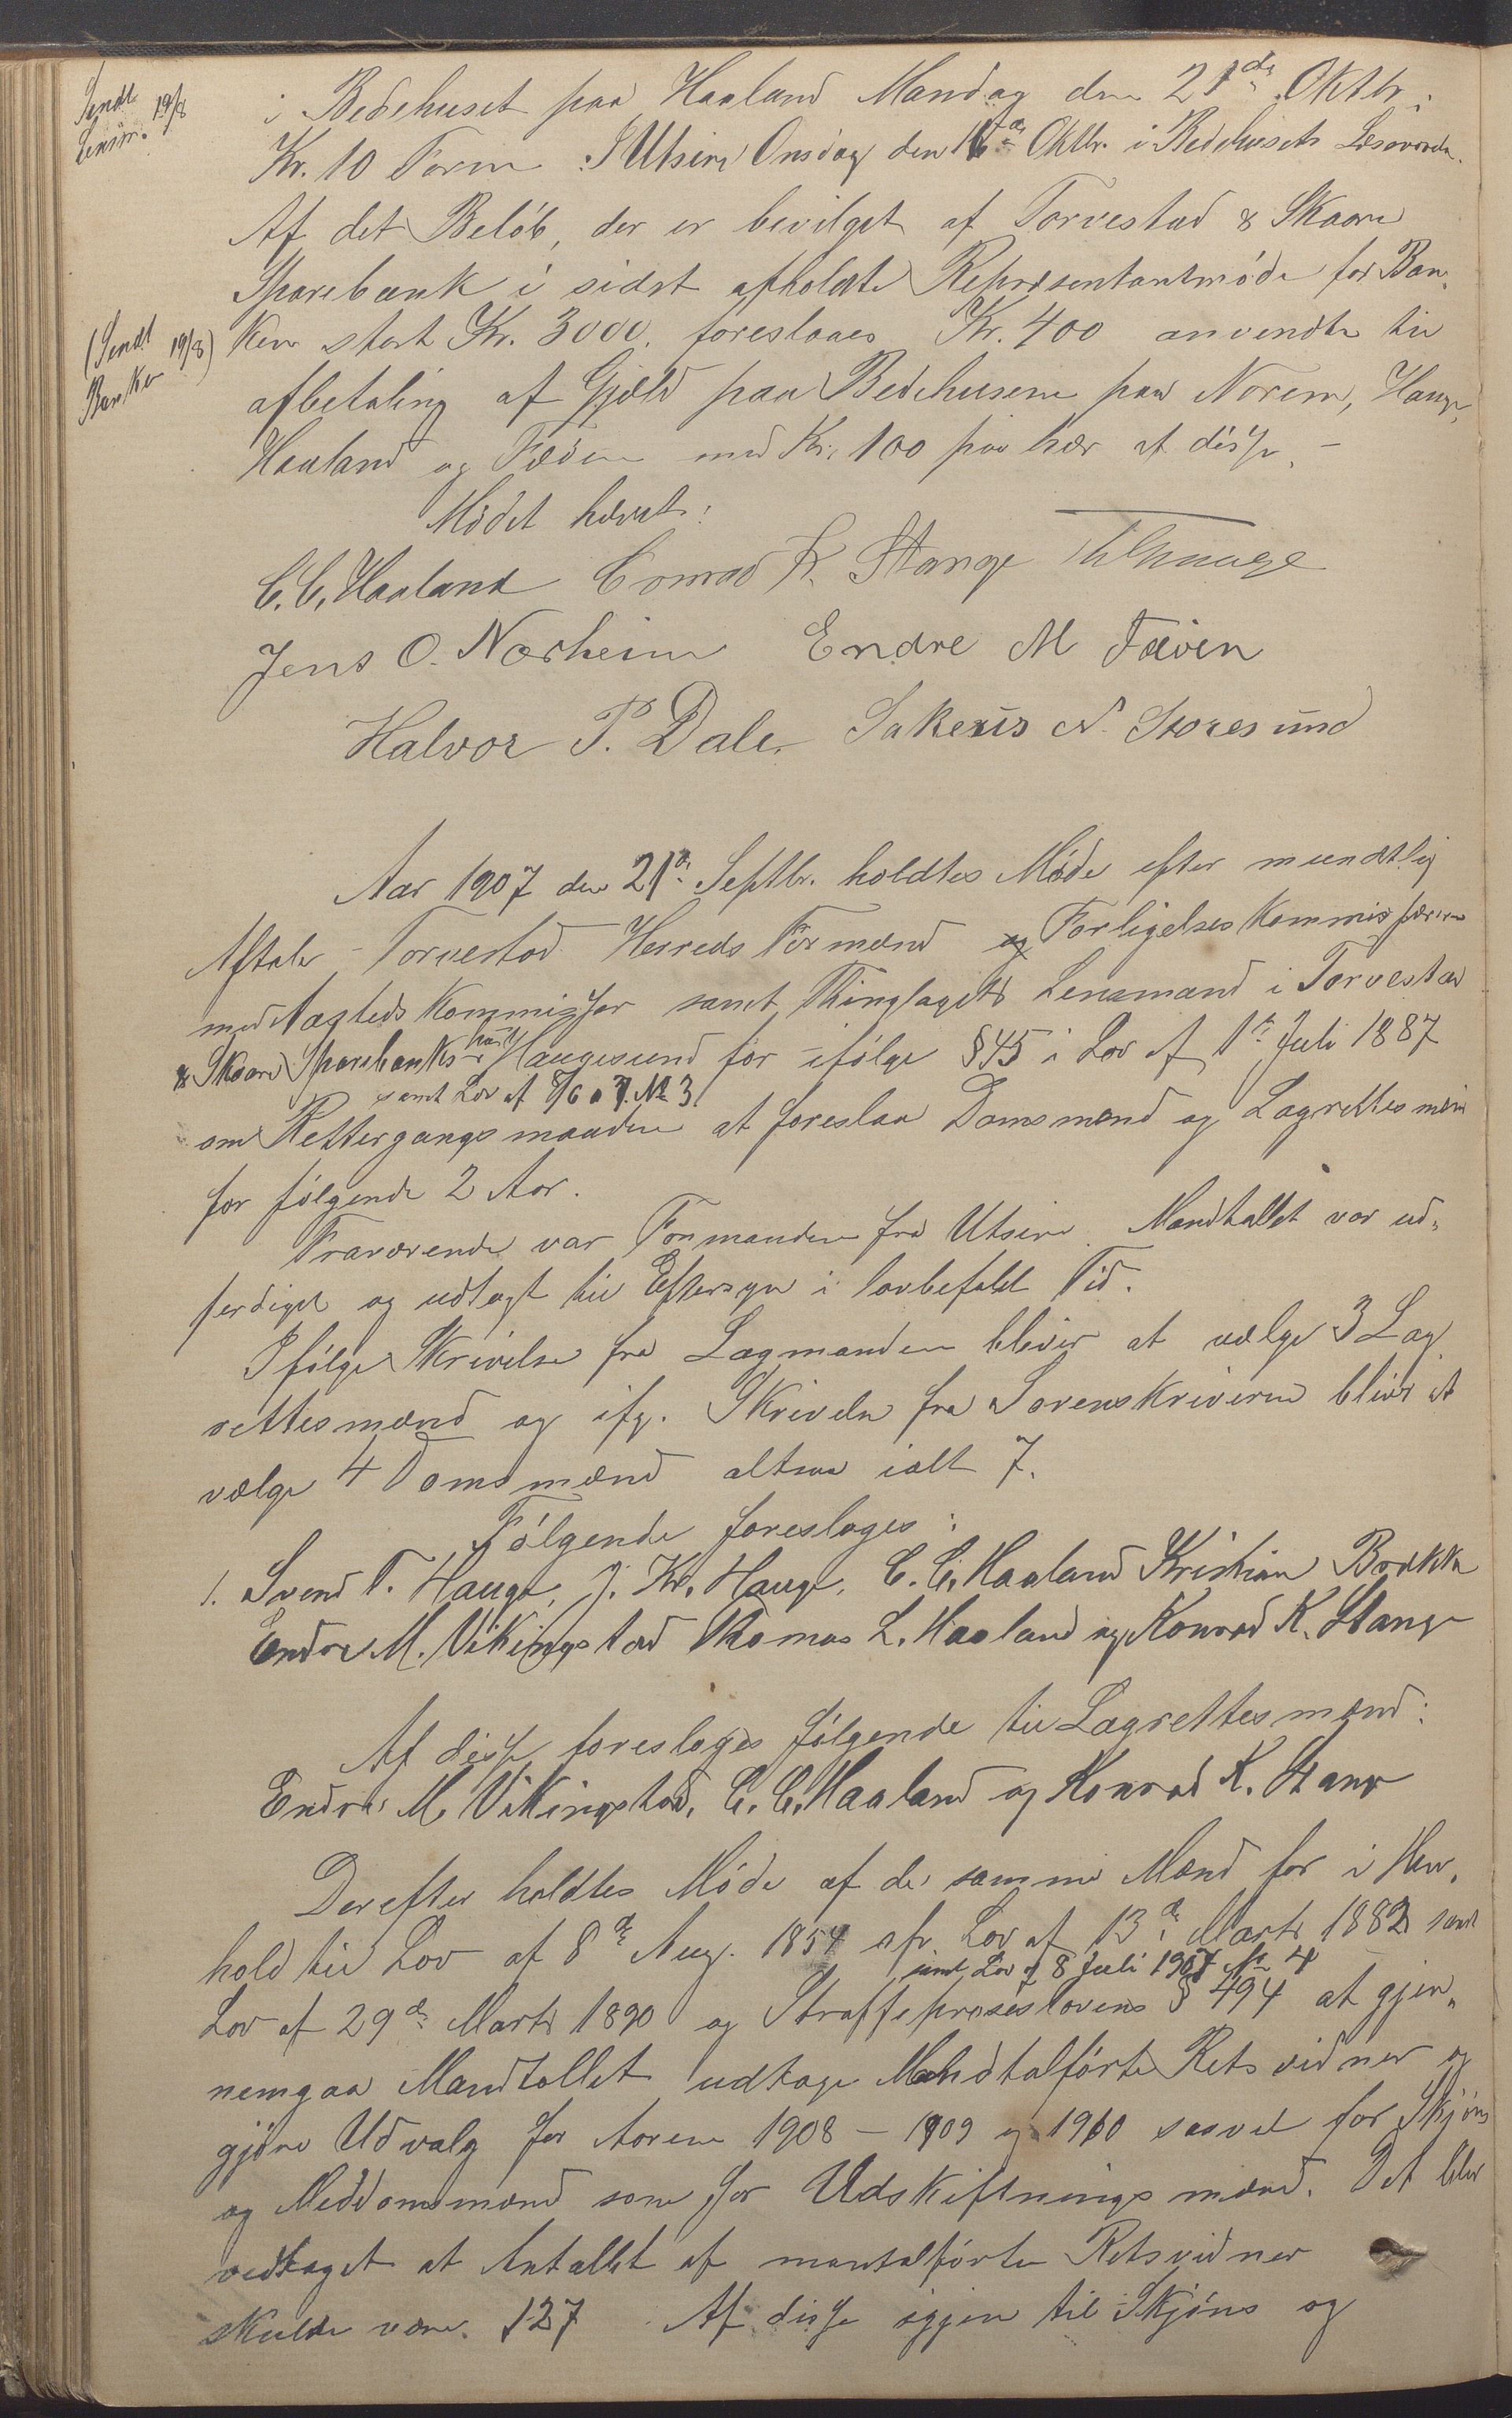 Sendt
Lensm. 19/8
i Bedehuset paa Haaland Mandag den 21de Oktbr.
Kr. 10 Form. I Utsire Onsdag den 16de Oktbr. i Bedehusets
Af det Beløb, der er bevilget af Torvestad & Skaare
Sparebank i sidst afholdte Repræsentantmøde for Ban-
(Sendt 19/8)
Banken
ken stort Kr. 3000. foreslaaes Kr. 400 anvendte til
afbetaling af Gjæld paa Bedehusene paa Norem, Hauge,
Haaland og Fæøen med Kr. 100 paa hver af disse. –
Mødet hævet:
C. C. Haaland Conrad K. Stange
Jens O. Nærheim Endre M Fæøen
Halvor P. Dale. Sakeus N. Storesund
Aar 1907 den 21de Septbr. holdtes Møde efter mundtlig
Aftale Torvestad Herreds Formænd og Forligelseskommissærerne
med Nagteds Kommissær samt Thinglagets Lensmand i Torvestad
& Skaare Sparebanks paa Haugesund for ifølge § 45 i Lov af 1ste Juli 1887
samt Lov af 8/6 07. No 3
om Rettergangsmaaden at foreslaa Domsmænd og Lagrettesmænd
for følgende 2 Aar.
Fraværende var Formanden fra Utsire. Mandtallet var ud-
ferdiget og udlagt til Eftersyn i lovbefalet Tid.
Ifølge Skrivelse fra Lagmanden bliver at vælge 3 Lag
rettesmænd og ifg. Skrivelse fra Sorenskriveren bliver at
vælge 4 Domsmænd altsaa ialt 7.
Følgende foresloges:
1. Svend T. Hauge, J. Kr. Hauge, C. C. Haaland Kristian Brekke
Endre M. Vikingstad Thomas L. Haaland og Konrad K. Stange
Af disse foresloges følgende til Lagrettesmænd:
Endre M. Vikingstad, C. C. Haaland og Konrad K. Stange
Derefter holdtes Møde af de samme Mænd for i Hen-
hold til Lov af 8de Aug. 1854 cfr. Lov af 13de Marts 1882 samt
samt Lov af 8 Juli 1907 No 4
Lov af 29de Marts 1890 og Straffeproseslovens § 494 at gjen-
nemgaa Mandtallet udtage Mandtalførte Retsvidner og
gjøre Udvalg for Aarene 1908 – 1909 og 1910 saavel for Skjøns
og Meddomsmænd som for Udskiftningsmænd. Det blev
vedtaget at Antallet af mantalførte Retsvidner
skulde være 127 Af disse igjen til Skjøns og